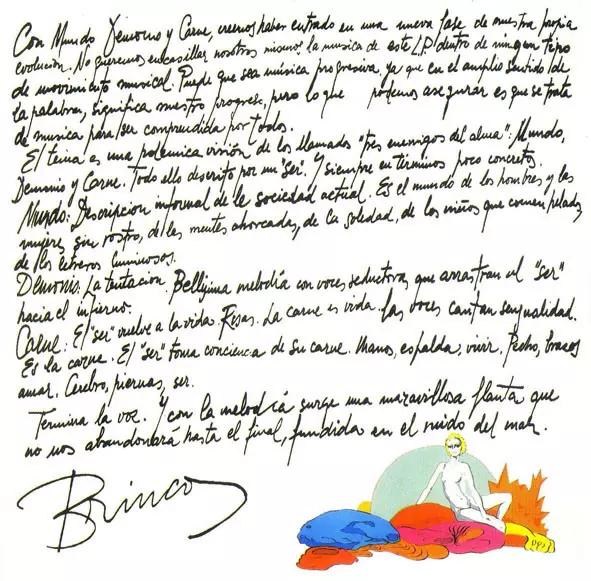 Con Mundo Demonio y Carne, creemos haber entrado en una nueva fase de nuestra propia
evolución. No queremos encasillar nosotros mismos la musica de este LP dentro de ningun tipo
de movimiento musical. Puede que sea música progresiva, ya que en el amplio sentido de
la palabra, significa nuestro progreso, pero lo que podemos asegurar es que se trata
de musica para ser comprendida por todos.
El tema es una polemica visión de los llamados "tres enemigos del alma": Mundo,
Demonio y Carne. Todo ello descrito por un "ser". Y siempre en términos poco concretos.
Mundo: Descripcion informal de la sociedad actual. Es el mundo de los hombres y las
mujeres sin rostro, de las mentes ahorcadas, de la soledad, de los niños que comen helados,
de los letreros luminosos.
Demonio: La tentacion. Bellisima melodía con voces seductoras que arrastran al "ser"
hacia el infierno.
Carne: El "ser" vuelve a la vida. Risas. La carne es vida. Las voces cantan sensualidad.
Es la carne. El "ser" toma conciencia de su carne. Manos, espalda, vivir. Pecho, brazos
amar. Cerebro, piernas, ser.
Termina la voz. Y con la melodía surge una maravillosa flauta que
no nos abandonará hasta el final, fundida en el ruido del mar.
Brincos